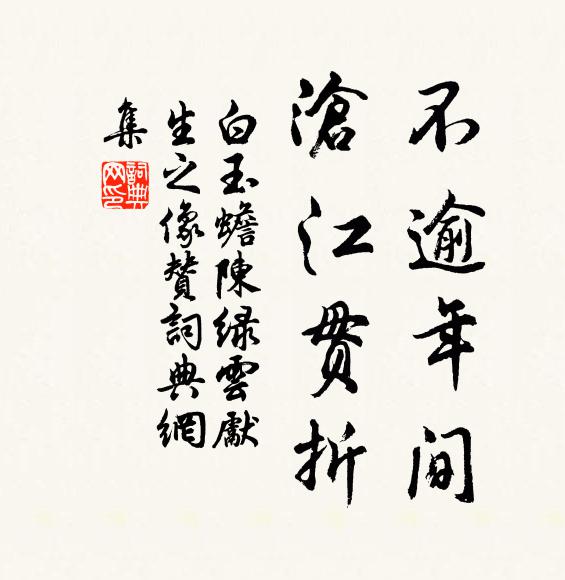 不逾年间
滄江贯折
白玉蟾陳绿雲獻
生之像贊詞典網
集
詞典網印